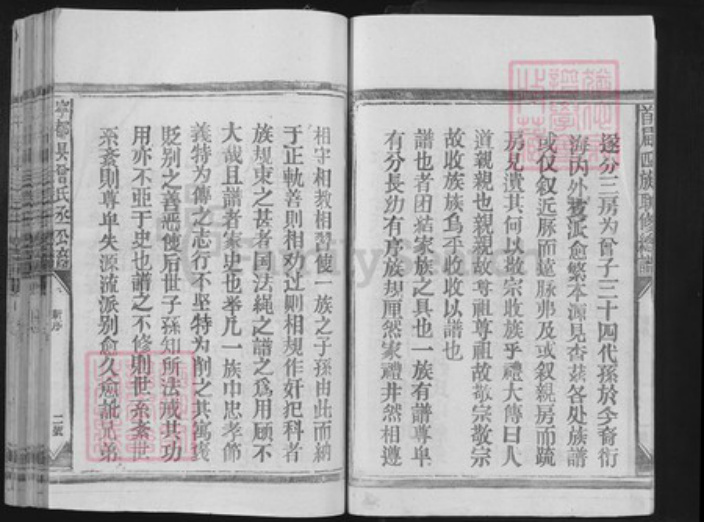 首届四族联修总谱
遂分三房为曾子三十四代孫於今裔衍
海内外支派愈繁本源見杳茲各处族譜
或仅叙近脉而遠脉弗及或叙親房而疏
房見遺其何以敬宗收族乎禮大傳曰人
道親親也親親故尊祖尊祖故敬宗敬宗
故收族族烏乎收收以譜也
譜也者团結家族之具也一族有譜尊卑
有分長幼有序族規厘然家禮井然相遵
相守相教相習使一族之子孫由此而納
于正軌善則相劝过則相規作奸犯科者
族規束之甚者国法繩之譜之爲用顧不
大哉且譜者家史也举凡一族中忠孝節
義特为傳之志行不坚特为削之其寓褒
贬别之善恶使后世子孫知所法戒其功
用亦不亜于史也譜之不修則世系紊世
系紊則尊卑失源流派别愈久愈訛兄弟
寧都县曾氏丞公譜
新序
二號
FamilySearch